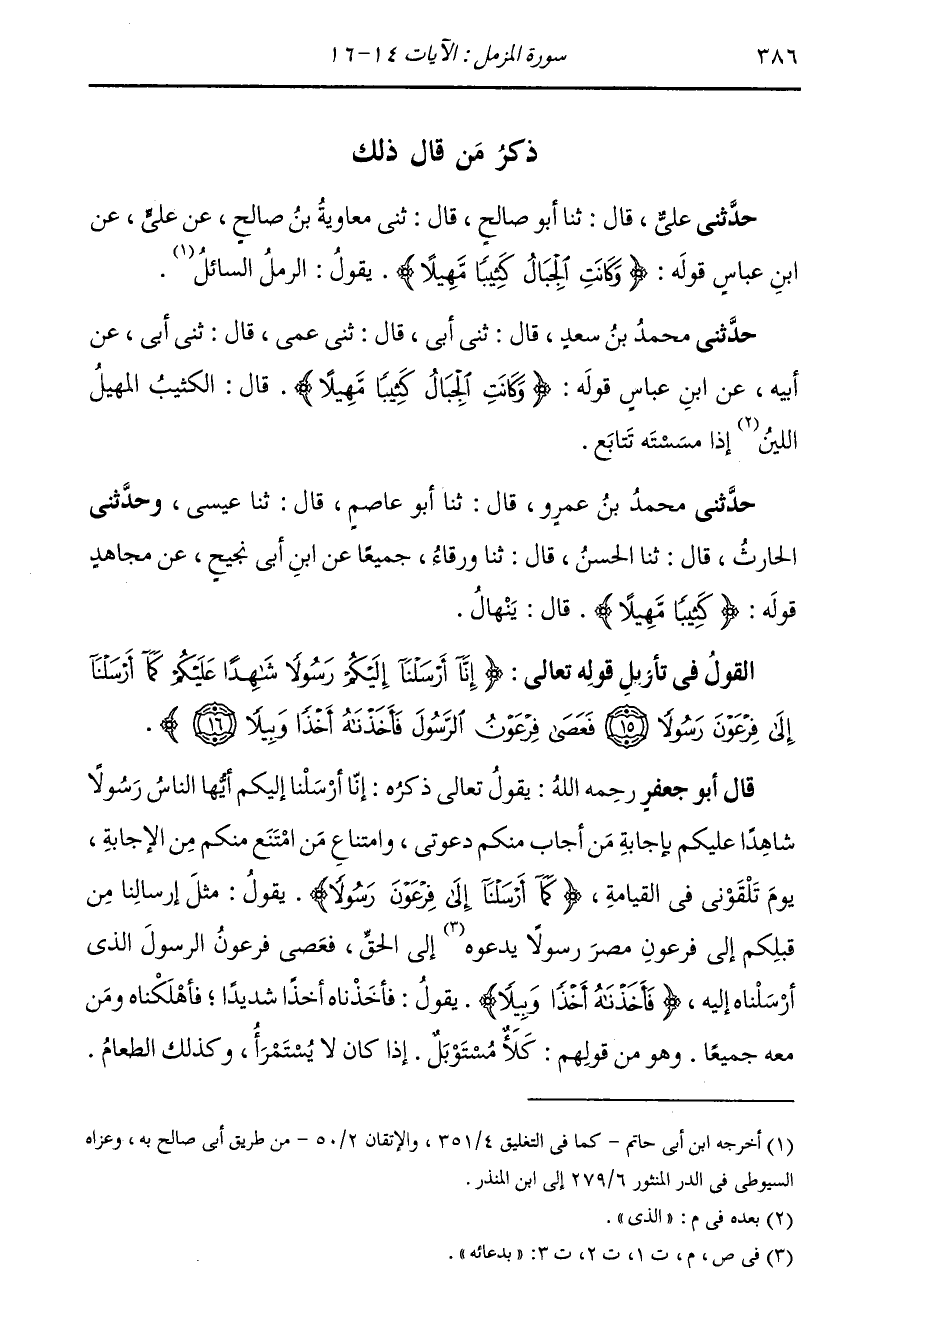 ٣٨٦ سورة المزمل : الآيات ١٤-١٦
ذكرُ مَن قال ذلك
حدَّثنى علىٌّ ، قال : ثنا أبو صالحٍ ، قال : ثنى معاويةُ بنُ صالحٍ ، عن علىٍّ ، عن
ابنِ عباسٍ قولَه : ﴿ وَكَانَتِ ٱلْجِبَالُ كَثِيبًا مَّهِيلًا ﴾ . يقولُ : الرملُ السائلُ(١) .
حدَّثنى محمدُ بنُ سعدٍ ، قال : ثنى أبى ، قال : ثنى عمى ، قال : ثنى أبى ، عن
أبيه ، عن ابنِ عباسٍ قولَه : ﴿ وَكَانَتِ ٱلْجِبَالُ كَثِيبًا مَّهِيلًا ﴾ . قال : الكثيبُ المهيلُ
اللينُ(٢) إذا مسَسْتَه تَتابَع .
حدَّثنى محمدُ بنُ عمرٍو ، قال : ثنا أبو عاصمٍ ، قال : ثنا عيسى ، وحدَّثنى
الحارثُ ، قال : ثنا الحسنُ ، قال : ثنا ورقاءُ ، جميعًا عن ابنِ أبى نجيحٍ ، عن مجاهدٍ
قولَه : ﴿ كَثِيبًا مَّهِيلًا ﴾ . قال : يَنْهالُ .
القولُ فى تأويلِ قولِه تعالى : ﴿ إِنَّآ أَرْسَلْنَآ إِلَيْكُمْ رَسُولًا شَٰهِدًا عَلَيْكُمْ كَمَآ أَرْسَلْنَآ
إِلَىٰ فِرْعَوْنَ رَسُولًا ﴿١٥﴾ فَعَصَىٰ فِرْعَوْنُ ٱلرَّسُولَ فَأَخَذْنَٰهُ أَخْذًا وَبِيلًا ﴿١٦﴾ ﴾ .
قال أبو جعفرٍ رحِمه اللهُ : يقولُ تعالى ذكرُه : إنّا أرْسَلْنا إليكم أيُّها الناسُ رَسُولًا
شاهِدًا عليكم بإجابةِ مَن أجاب منكم دعوتى ، وامتناعِ مَن امْتَنَع منكم مِن الإجابةِ ،
يومَ تَلْقَوْنى فى القيامةِ ، ﴿ كَمَآ أَرْسَلْنَآ إِلَىٰ فِرْعَوْنَ رَسُولًا ﴾ . يقولُ : مثلَ إرسالِنا مِن
قبلِكم إلى فرعونِ مصرَ رسولًا يدعوه(٣) إلى الحقِّ ، فعَصى فرعونُ الرسولَ الذى
أرْسَلْناه إليه ، ﴿ فَأَخَذْنَٰهُ أَخْذًا وَبِيلًا ﴾ . يقولُ : فأخَذْناه أخذًا شديدًا ؛ فأهْلَكْناه ومَن
معه جميعًا . وهو من قولِهم : كَلَأٌ مُسْتَوْبَلٌ . إذا كان لا يُسْتَمْرَأُ ، وكذلك الطعامُ .
(١) أخرجه ابن أبى حاتم - كما فى التغليق ٣٥١/٤ ، والإتقان ٥٠/٢ - من طريق أبى صالح به ، وعزاه
السيوطى فى الدر المنثور ٢٧٩/٦ إلى ابن المنذر .
(٢) بعده فى م : « الذى » .
(٣) فى ص ، م ، ت ١، ت ٢، ت ٣: « بدعائه » .